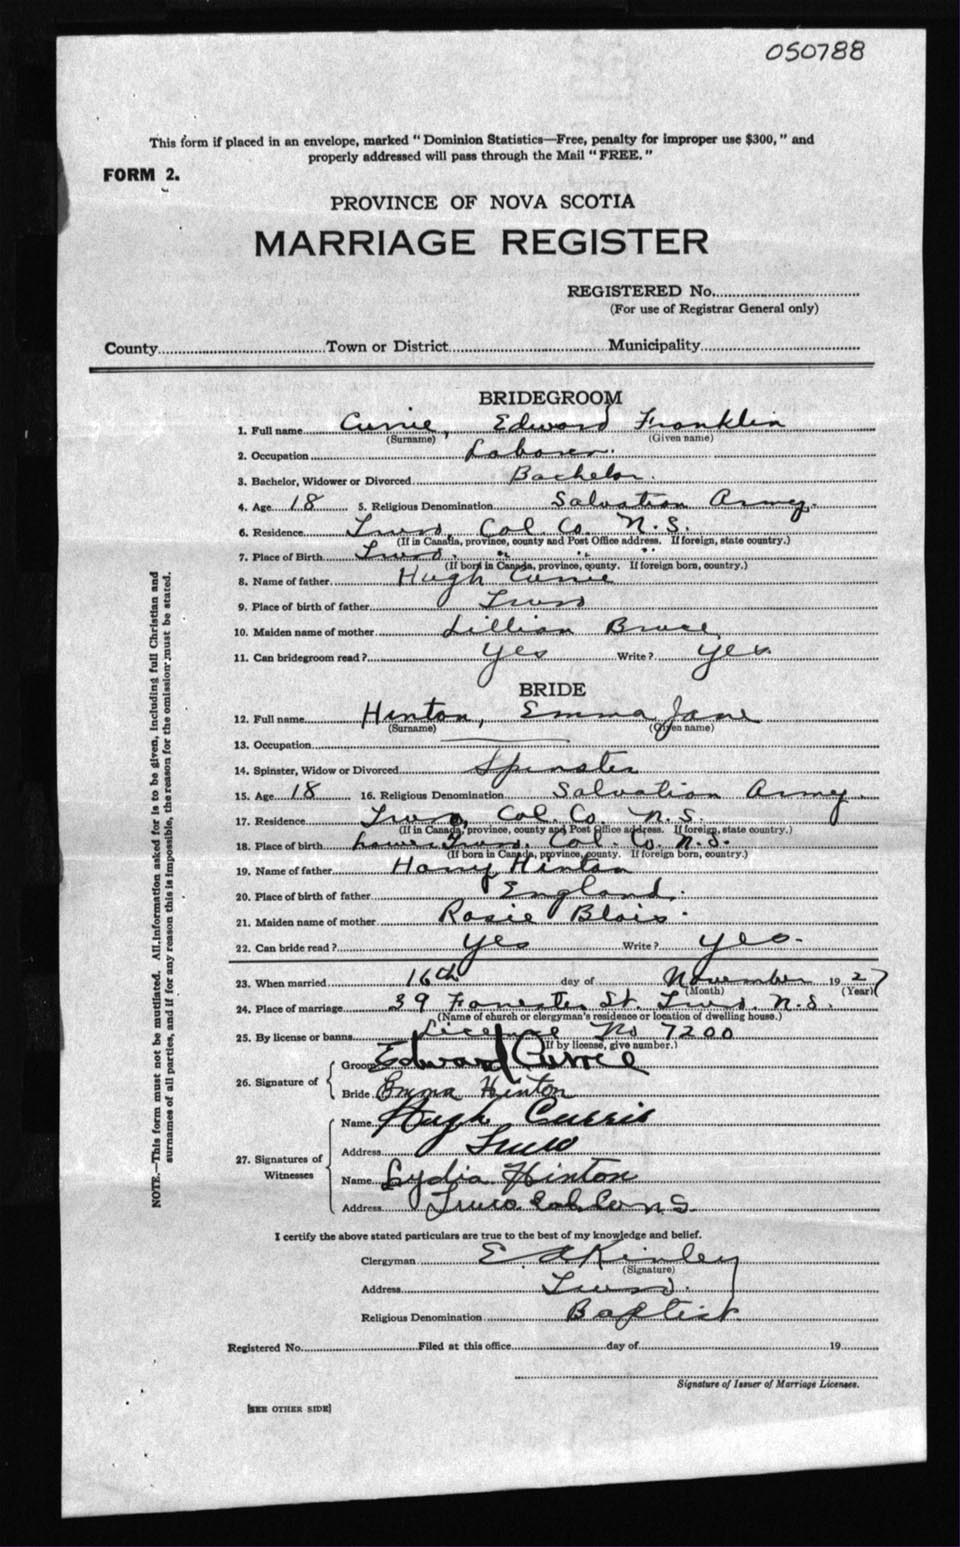 050788
This form if placed in an envelope, marked "Dominion Statistics—Free, penalty for improper use $300," and
properly addressed will pass through the Mail "FREE."
FORM 2.
PROVINCE OF NOVA SCOTIA
MARRIAGE REGISTER
REGISTERED No.
(For use of Registrar General only)
County Town or District Municipality
BRIDEGROOM
1. Full name Currie, Edward Franklin
(Surname) (Given name)
2. Occupation Laborer.
3. Bachelor, Widower or Divorced Bachelor.
4. Age 18 5. Religious Denomination Salvation Army.
6. Residence Truro, Col. Co. N.S.
(If in Canada, province, county and Post Office address. If foreign, state country.)
7. Place of Birth Truro. " " "
(If born in Canada, province, county. If foreign born, country.)
8. Name of father Hugh Currie
9. Place of birth of father Truro
10. Maiden name of mother Lillian Bruce
11. Can bridegroom read? Yes Write? Yes
BRIDE
12. Full name Hinton, Emma Jane
(Surname) (Given name)
13. Occupation
14. Spinster, Widow or Divorced Spinster
15. Age 18 16. Religious Denomination Salvation Army.
17. Residence Truro, Col. Co. N.S.
(If in Canada, province, county and Post Office address. If foreign, state country.)
18. Place of birth Lower Truro. Col. Co. N.S.
(If born in Canada, province, county. If foreign born, country.)
19. Name of father Harry Hinton
20. Place of birth of father England.
21. Maiden name of mother Rosie Blois.
22. Can bride read? Yes Write? Yes.
23. When married 16th day of November 1927
(Month) (Year)
24. Place of marriage 39 Forrester St. Truro, N.S.
(Name of church or clergyman's residence or location of dwelling house.)
25. By license or banns License No 7200
(If by license, give number.)
26. Signature of
Groom Edward Currie
Bride Emma Hinton
27. Signatures of Witnesses
Name Hugh Currie
Address Truro
Name Lydia Hinton
Address Truro Col Co N.S.
I certify the above stated particulars are true to the best of my knowledge and belief.
Clergyman E. A Kinley
(Signature)
Address Truro.
Religious Denomination Baptist.
Registered No. Filed at this office day of 19
Signature of Issuer of Marriage Licenses.
[SEE OTHER SIDE]
NOTE.—This form must not be mutilated. All information asked for is to be given, including full Christian and
surnames of all parties, and if for any reason this is impossible, the reason for the omission must be stated.